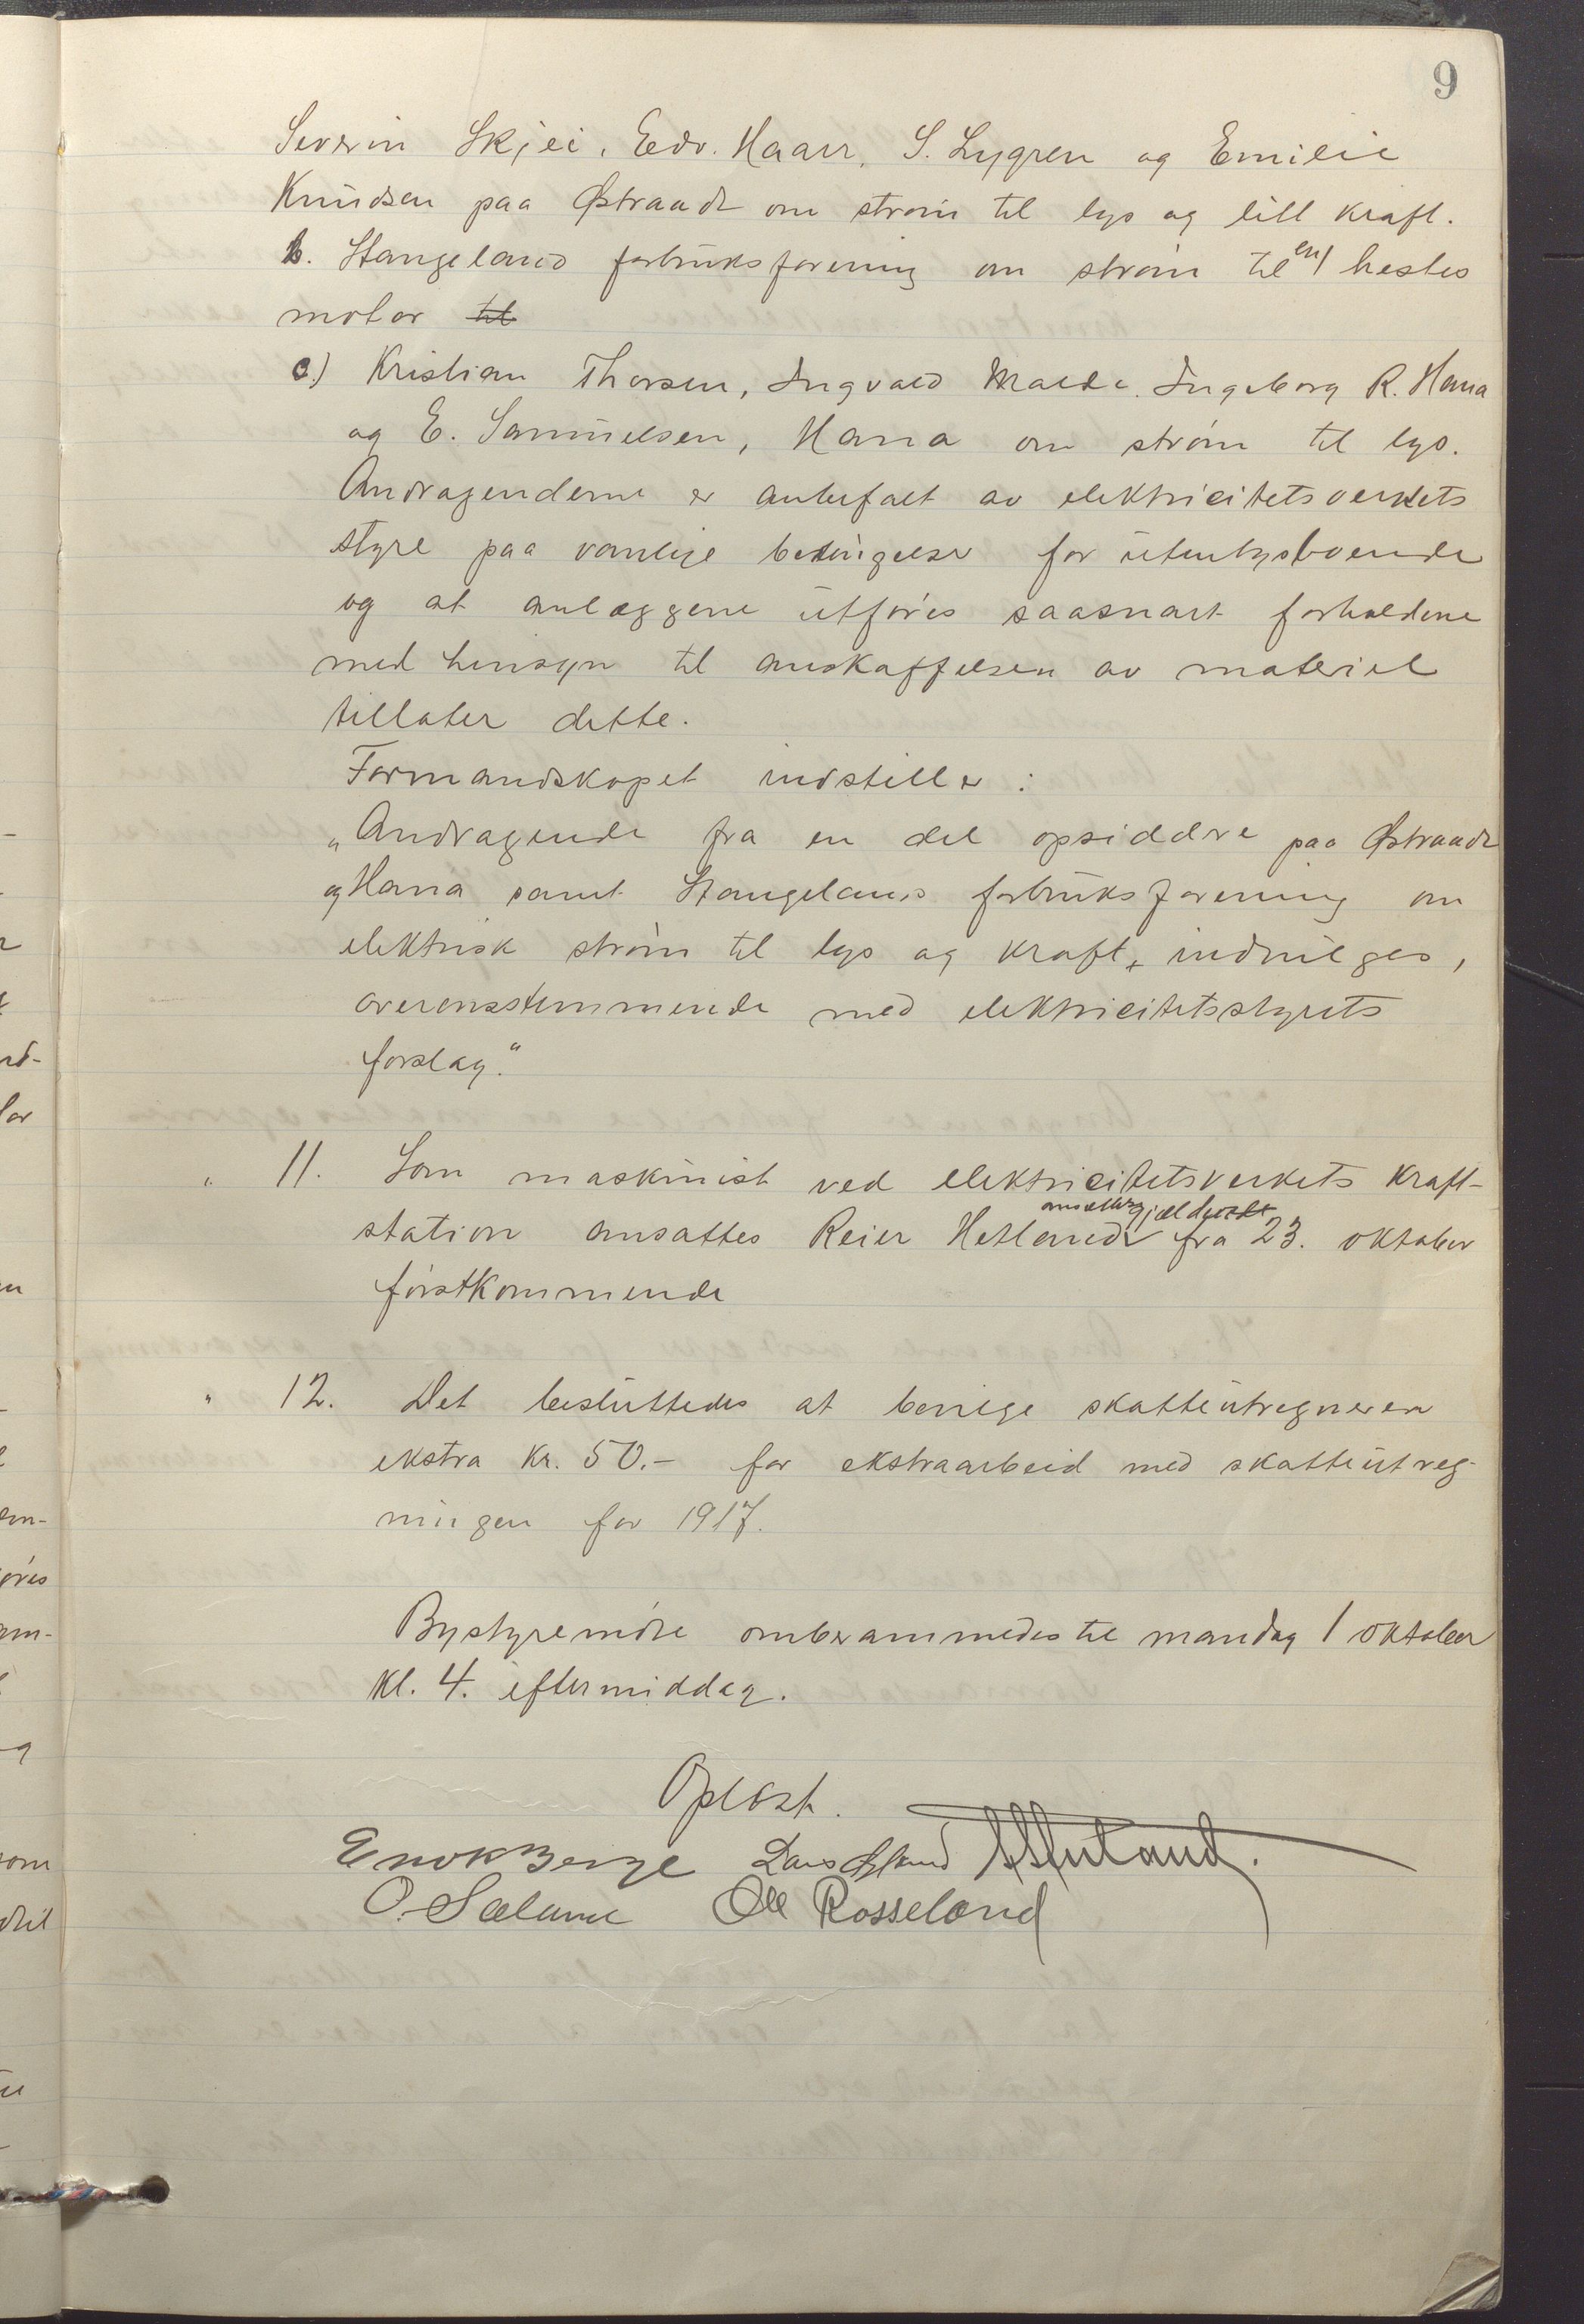 9
Severin Skjei, Edv. Haarr, S. Lygren og Emilie
Knudsen paa Østraadt om strøm til lys og litt kraft.
b. Stangeland forbruksforening om strøm til en 1 hestes
motor til
c.) Kristian Thorsen, Ingvald Malde, Ingeborg R. Hana
og E. Samuelsen, Hana om strøm til lys.
Andragenderne er anbefalt av elektricitetsverkets
styre paa vanlige betingelser for utenbysboende
og at anlæggene utføres saasnart forholdene
med hensyn til anskaffelsen av materiel
tillater dette.
Formandskapet indstiller:
„Andragende fra en del opsiddere paa Østraadt
og Hana samt Stangeland forbruksforening om
elektrisk strøm til lys og kraft, indvilges,
overensstemmende med elektricitetsstyrets
forslag."
„ 11. Som maskinist ved elektricitetsverkets kraft-
ansættes gjældende
station ansattes Reier Hetland fra 23. oktober
førstkommende
„ 12. Det besluttedes at bevilge skatteutregneren
ekstra kr. 50.- for ekstraarbeid med skatteutreg-
ningen for 1917.
Bystyremøte omberammedes til mandag 1 oktober
kl. 4. eftermiddag.
Opløst.
Enok Berge Lars
O. Sæland Ole Rosseland